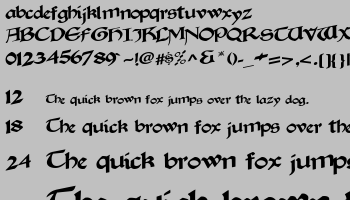 abcdefghijklmnopqrstuvwxyz
ABCDEFGHIJKLMNOPQRSTUVWX
0123456789 ~!@#$%^&*()-_+=>,<.[]{}
12 The quick brown fox jumps over the lazy dog.
18 The quick brown fox jumps over the
24 The quick brown fox jumps
The quick brown